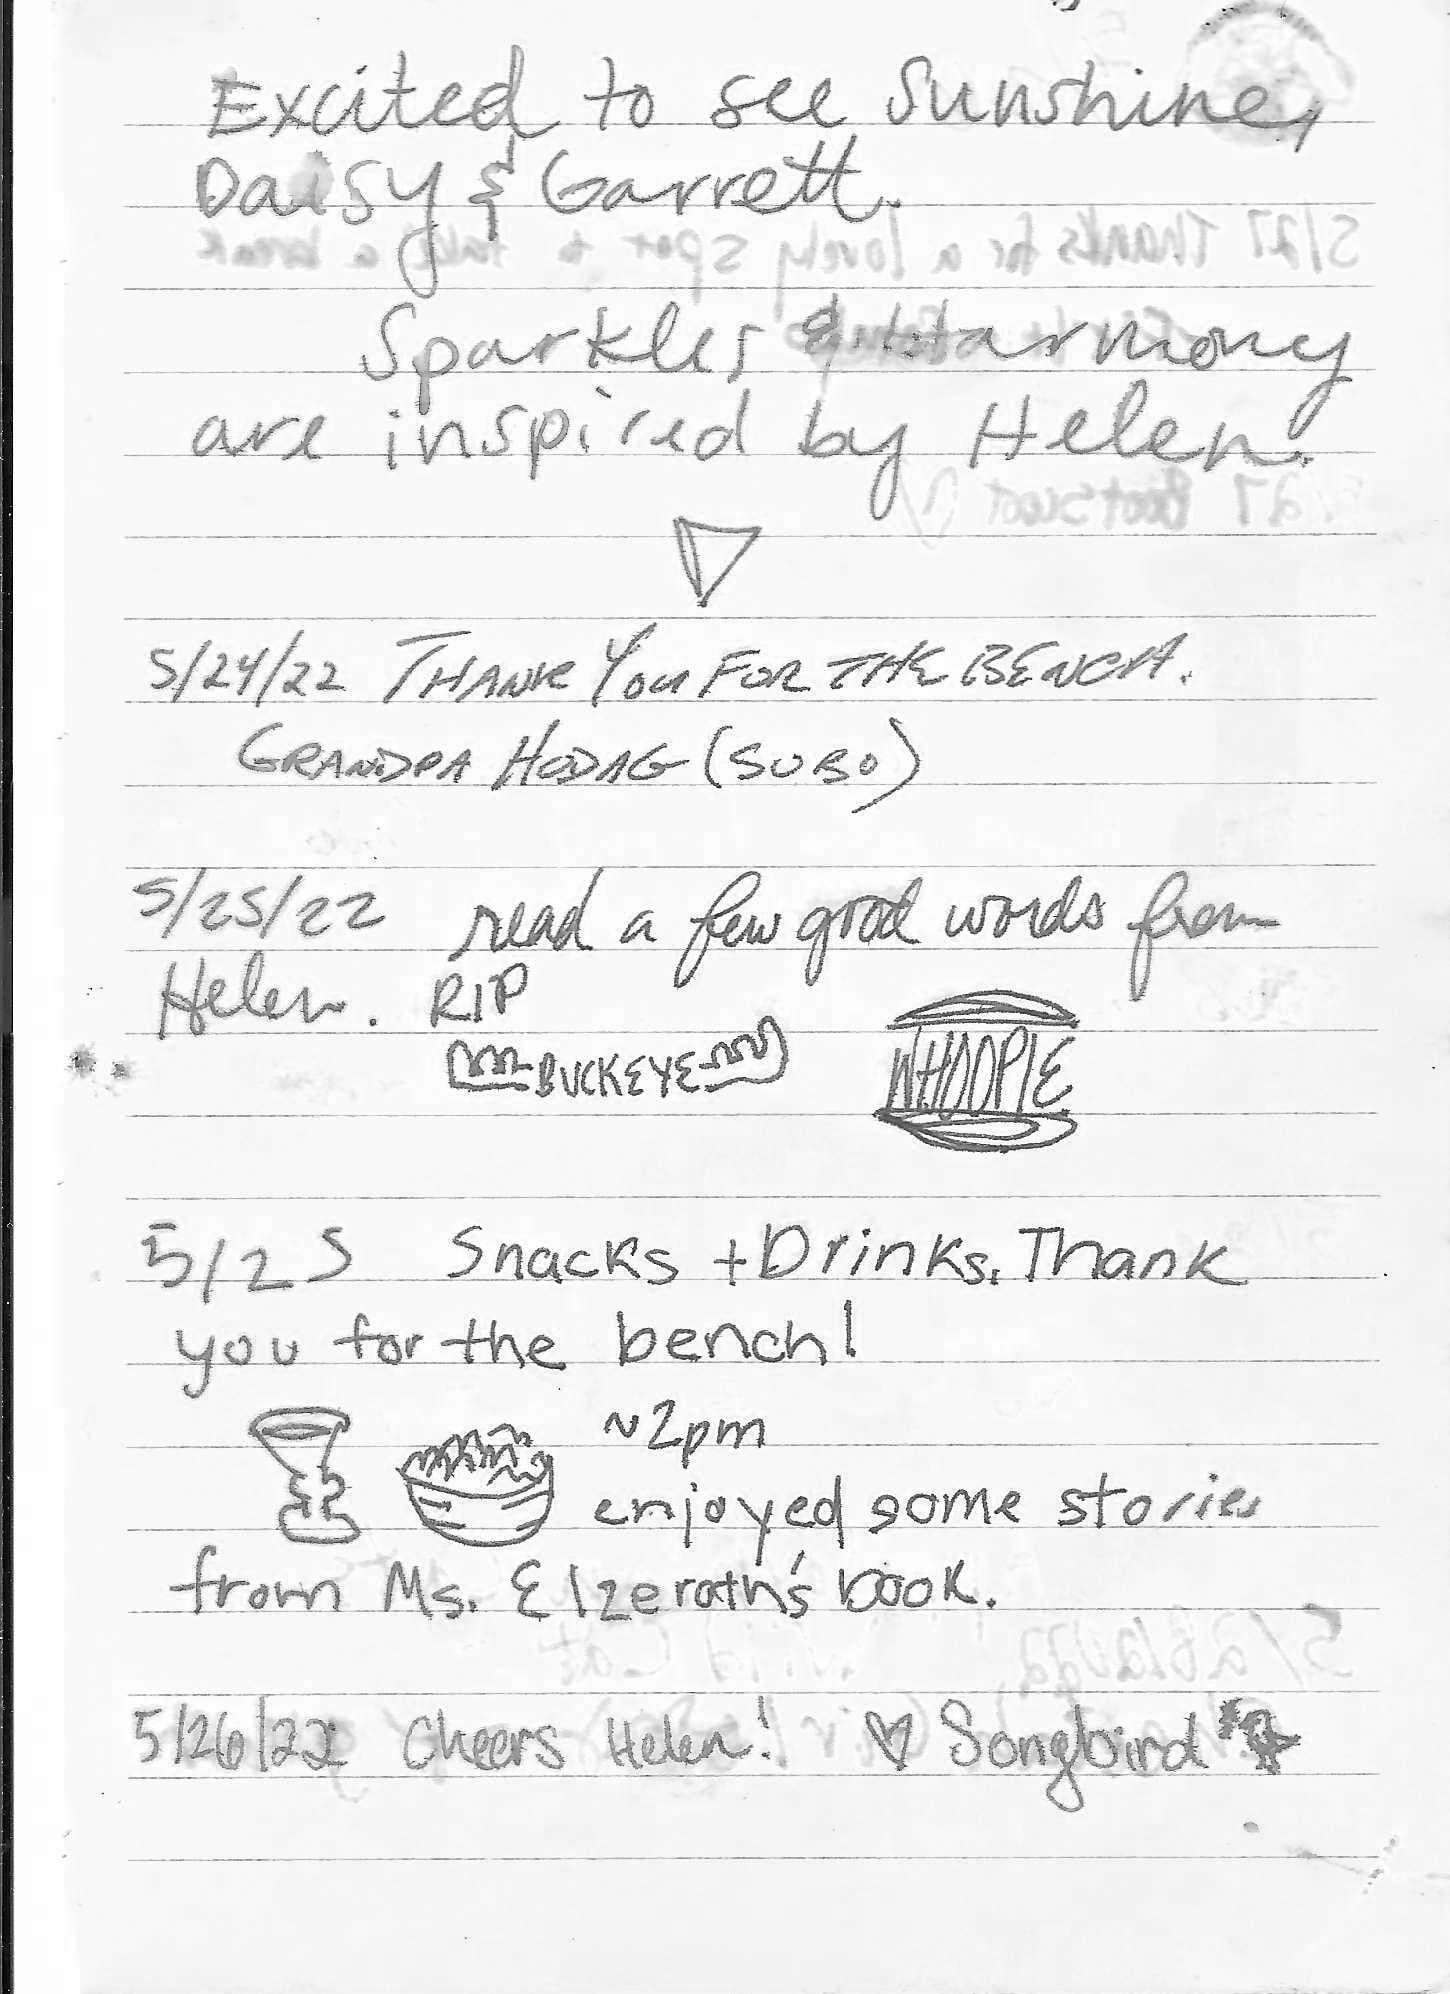 Excited to see Sunshine,
Daisy & Garrett.
Sparkles & Harmony
are inspired by Helen.
5/24/22 THANK YOU FOR THE BENCH.
GRANDPA HODAG (SOBO)
5/25/22 read a few good words from
Helen. RIP
BUCKEYE WHOOPIE
5/25 Snacks + Drinks. Thank
you for the bench!
~2pm
enjoyed some stories
from Ms. Elzerath's book.
5/26/22 Cheers Helen! ♡ Songbird